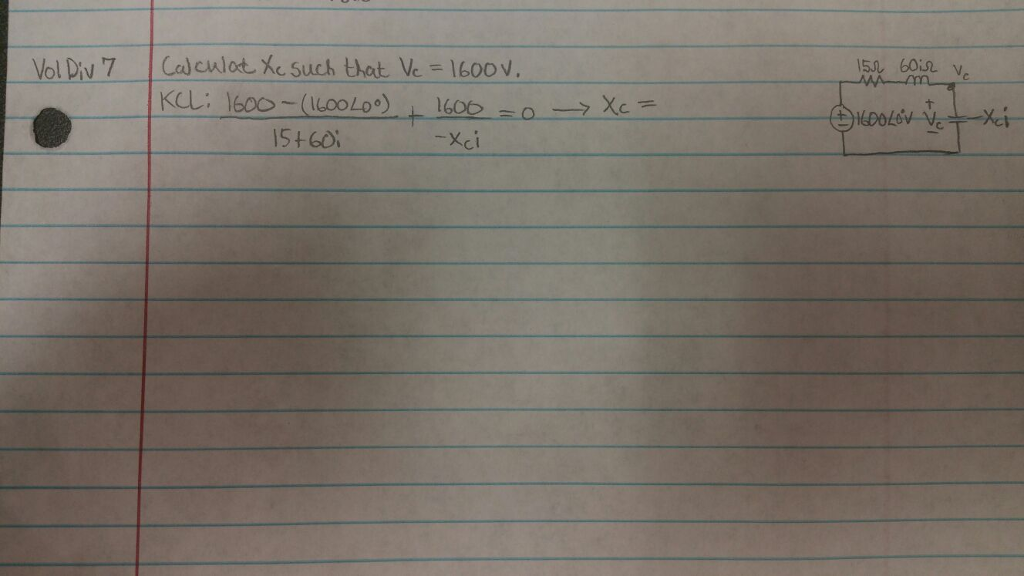 VolDiv 7 Calculat Xc such that Vc = 1600V.
KCL: 1600 - (1600∠0°) / 15+60i + 1600 / -Xci = 0 → Xc =
15Ω 60iΩ Vc
1600∠0°V + Vc - -Xci